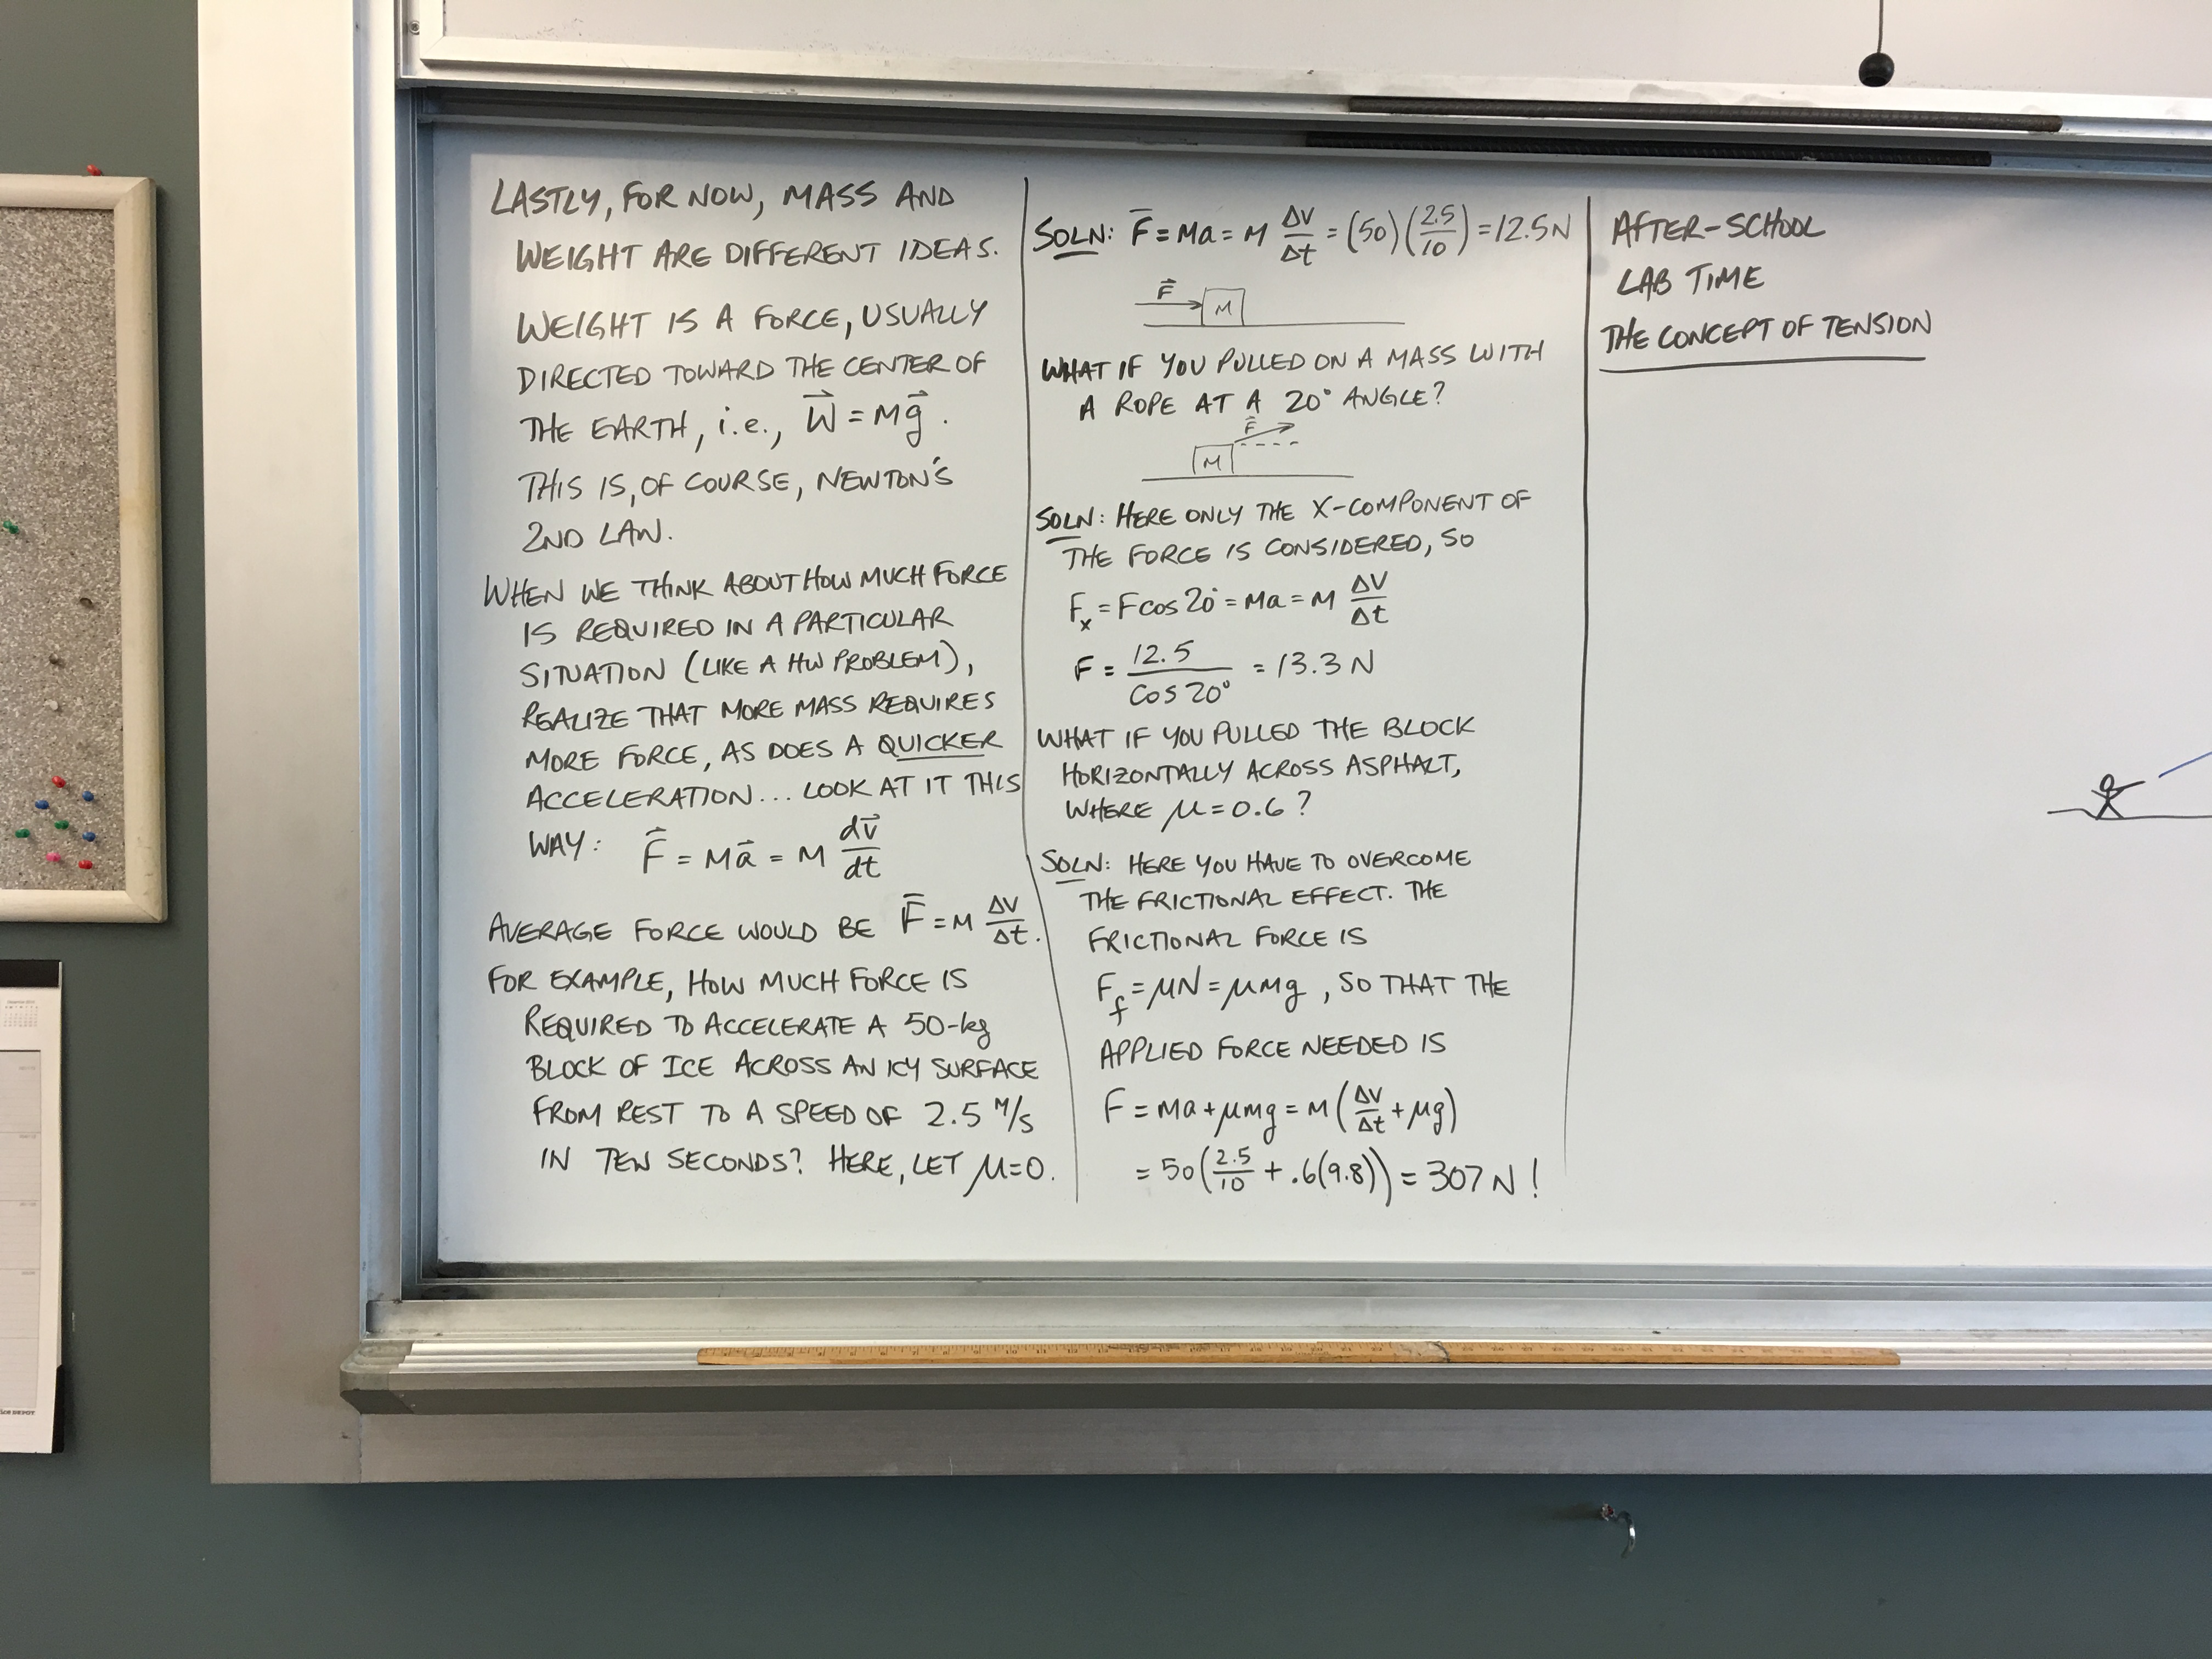 LASTLY, FOR NOW, MASS AND
WEIGHT ARE DIFFERENT IDEAS.
WEIGHT IS A FORCE, USUALLY
DIRECTED TOWARD THE CENTER OF
THE EARTH, i.e., W⃗ = Mg⃗.
THIS IS, OF COURSE, NEWTON'S
2ND LAW.
WHEN WE THINK ABOUT HOW MUCH FORCE
IS REQUIRED IN A PARTICULAR
SITUATION (LIKE A HW PROBLEM),
REALIZE THAT MORE MASS REQUIRES
MORE FORCE, AS DOES A QUICKER
ACCELERATION... LOOK AT IT THIS
WAY: F⃗ = Ma⃗ = M dv⃗/dt
AVERAGE FORCE WOULD BE F̄ = M Δv/Δt.
FOR EXAMPLE, HOW MUCH FORCE IS
REQUIRED TO ACCELERATE A 50-kg
BLOCK OF ICE ACROSS AN ICY SURFACE
FROM REST TO A SPEED OF 2.5 M/S
IN TEN SECONDS? HERE, LET μ=0.
SOLN: F̄ = Ma = M Δv/Δt = (50)(2.5/10) = 12.5N
F⃗ M
WHAT IF YOU PULLED ON A MASS WITH
A ROPE AT A 20° ANGLE?
F⃗
M
SOLN: HERE ONLY THE X-COMPONENT OF
THE FORCE IS CONSIDERED, SO
Fx = F cos 20° = Ma = M ΔV/Δt
F = 12.5/cos 20° = 13.3 N
WHAT IF YOU PULLED THE BLOCK
HORIZONTALLY ACROSS ASPHALT,
WHERE μ = 0.6?
SOLN: HERE YOU HAVE TO OVERCOME
THE FRICTIONAL EFFECT. THE
FRICTIONAL FORCE IS
Ff = μN = μmg, SO THAT THE
APPLIED FORCE NEEDED IS
F = ma + μmg = M(ΔV/Δt + μg)
= 50(2.5/10 + .6(9.8)) = 307 N!
AFTER-SCHOOL
LAB TIME
THE CONCEPT OF TENSION